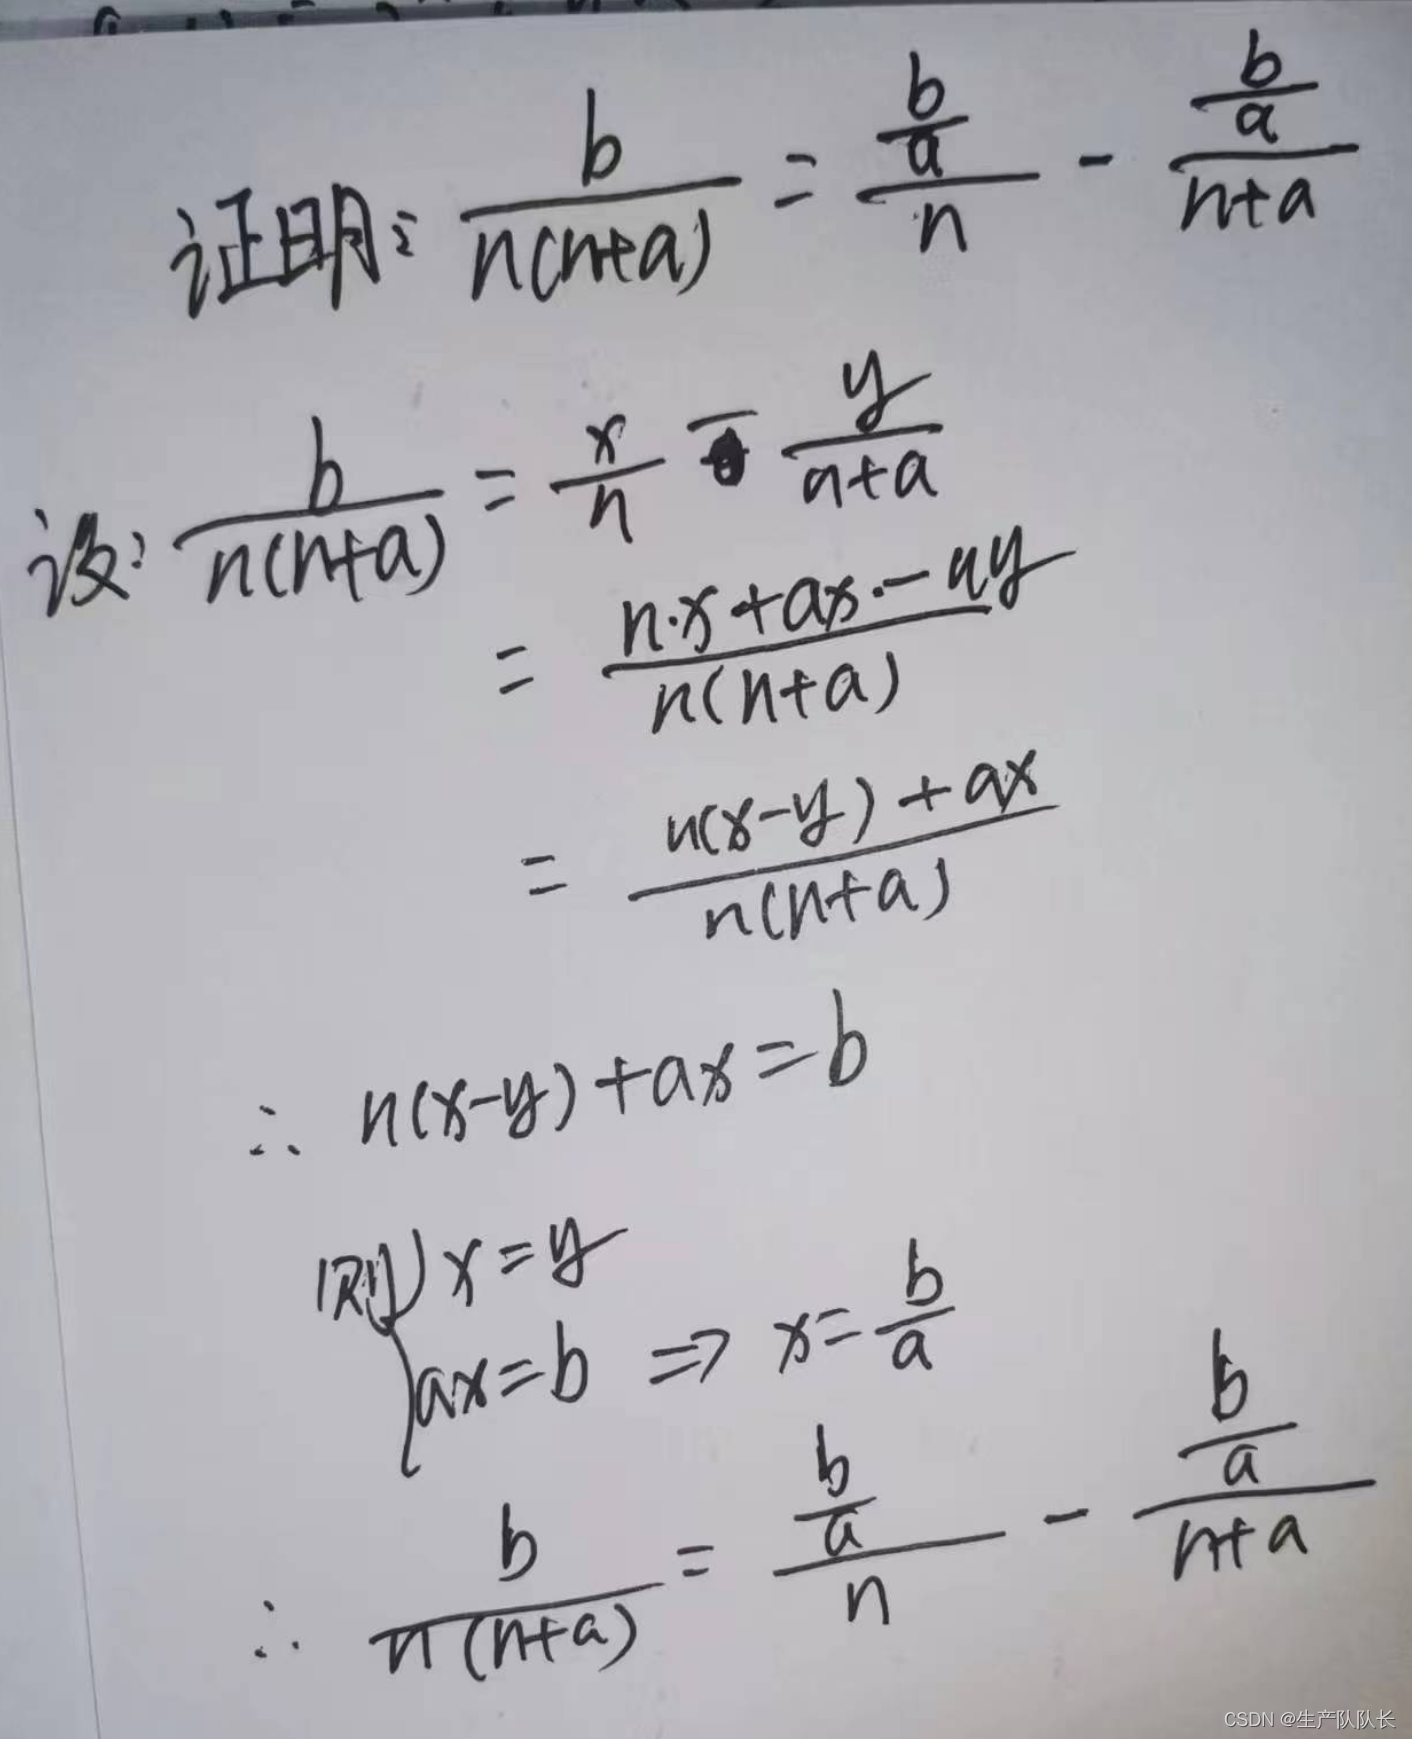 证明: \frac{b}{n(n+a)} = \frac{\frac{b}{a}}{n} - \frac{\frac{b}{a}}{n+a}
设: \frac{b}{n(n+a)} = \frac{x}{n} - \frac{y}{n+a}
= \frac{n·x+ax·-ny}{n(n+a)}
= \frac{n(x-y)+ax}{n(n+a)}
∴ n(x-y)+ax=b
则{ x=y
ax=b ⇒ x=\frac{b}{a}
∴ \frac{b}{n(n+a)} = \frac{\frac{b}{a}}{n} - \frac{\frac{b}{a}}{n+a}
CSDN @生产队队长